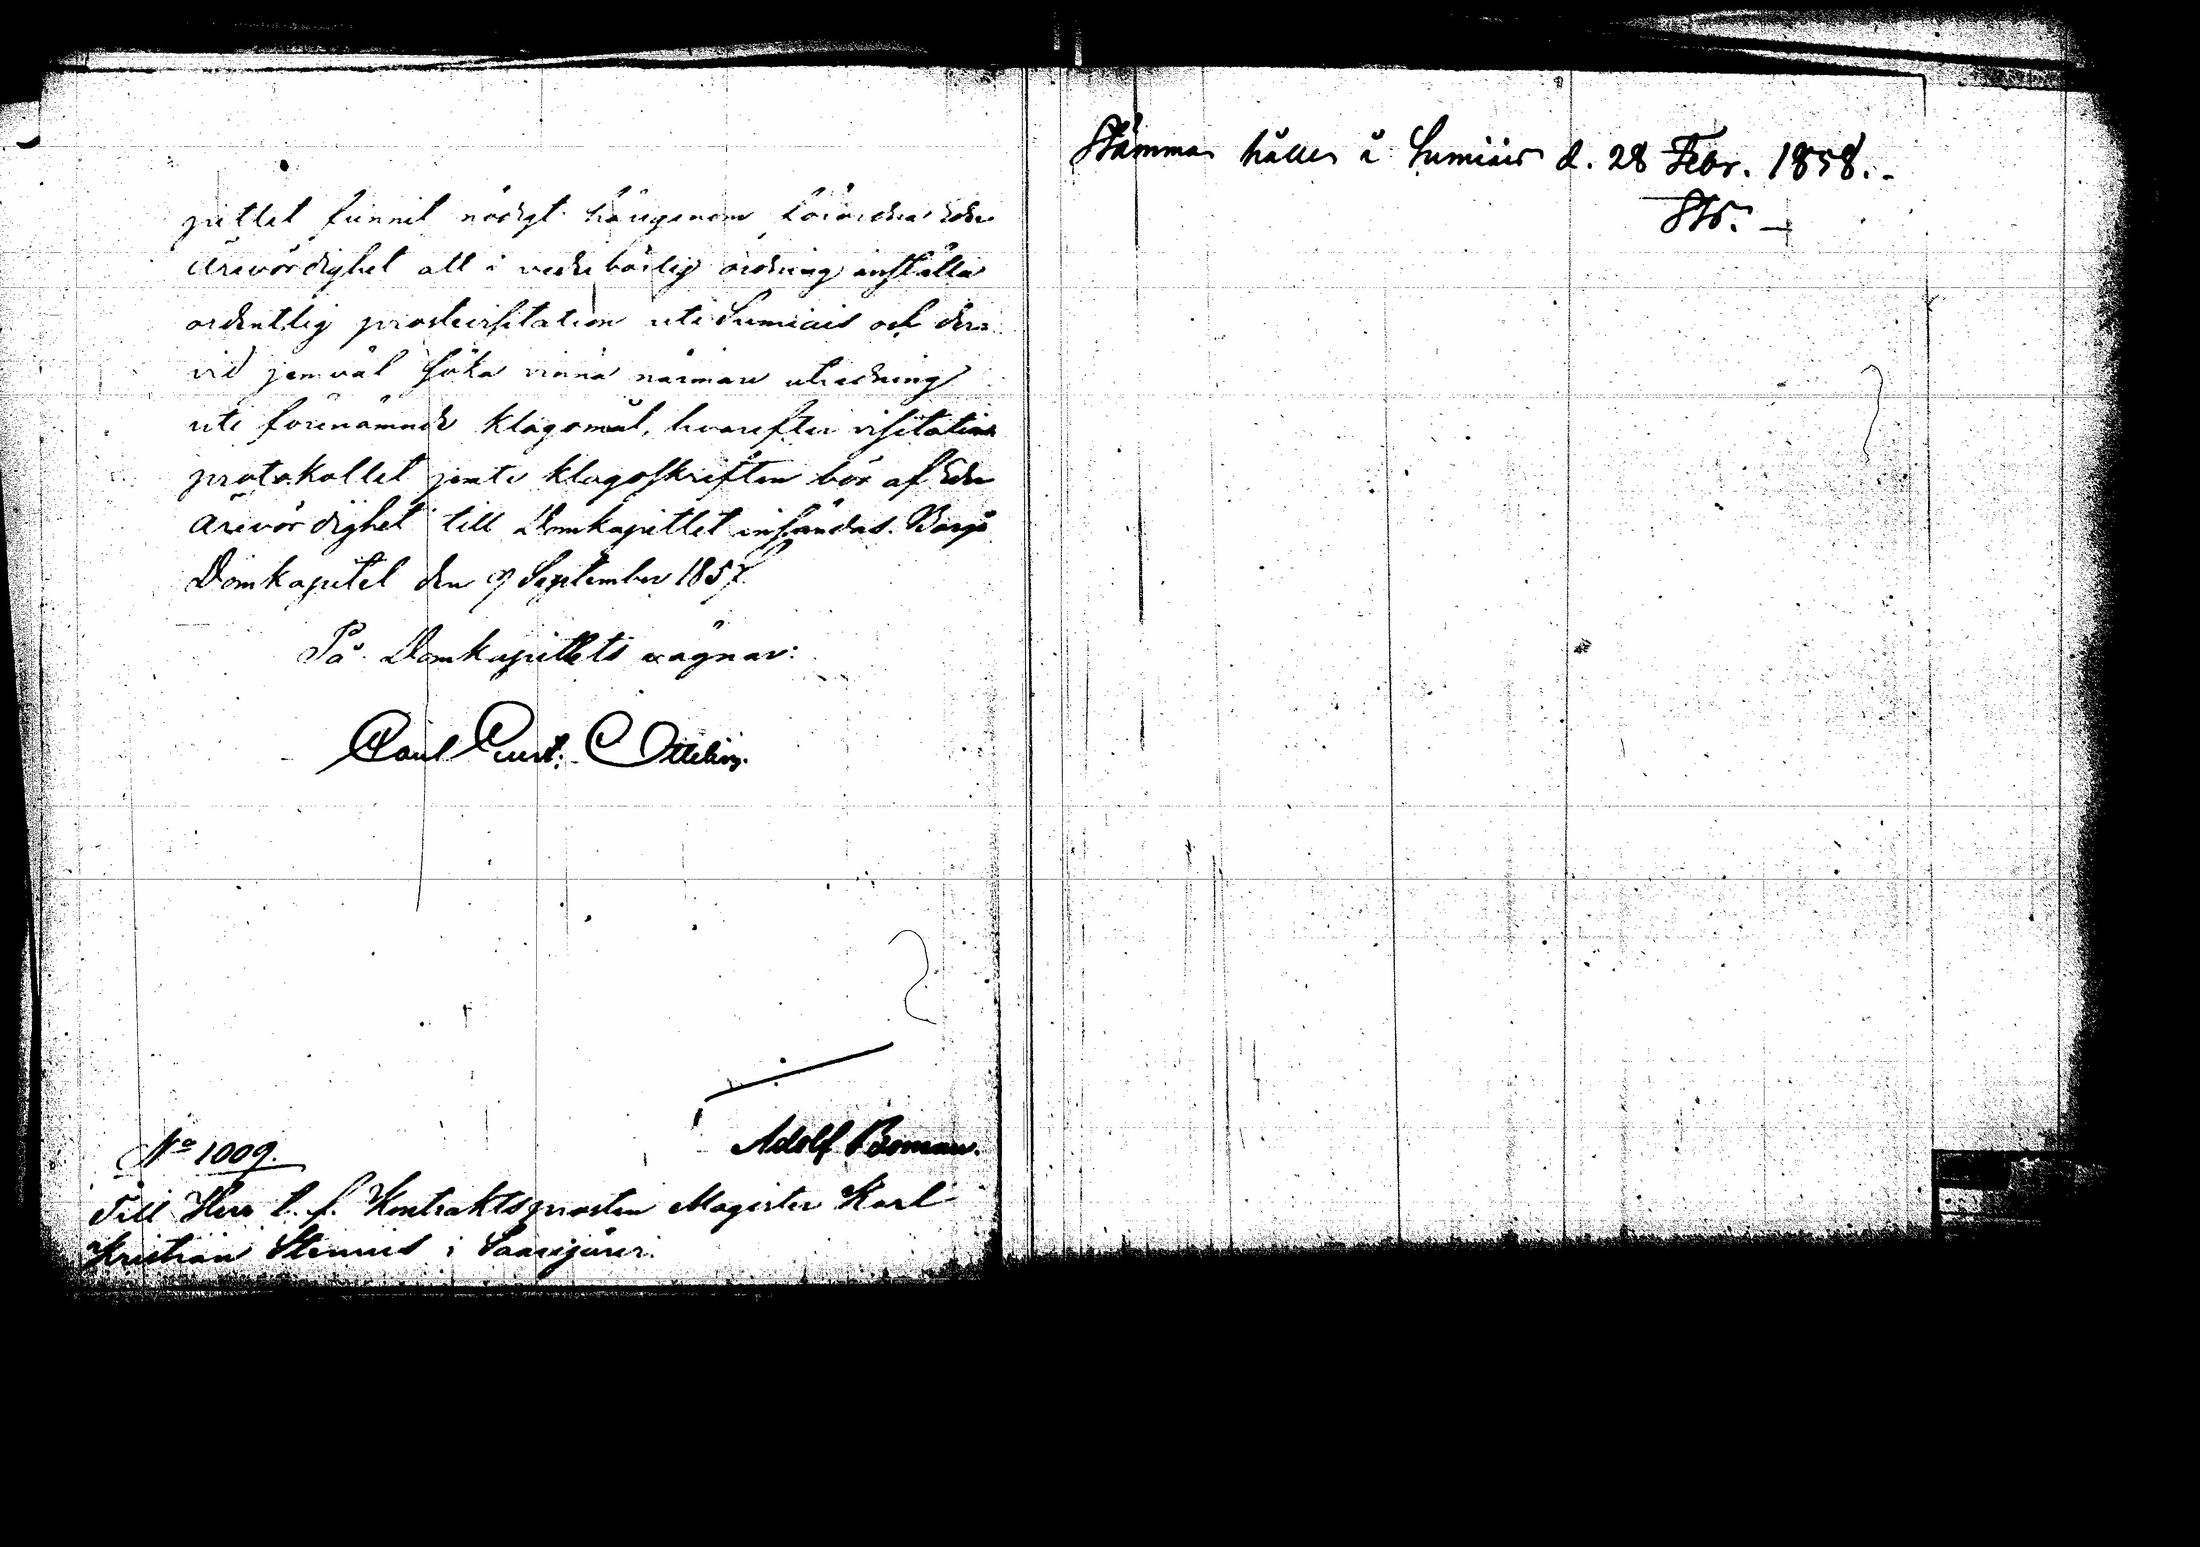 pittlet funnit nödigt härigenom förordna Eder
Ärevördighet att i vederbörlig ordning anställa
ordentlig prostvisitation uti Sumiais och der-
vid jemväl söka vinna närmare utredning
uti förenämnde klagomål, hvarefter visitations
protokollet jemte klagoskriften bör af Eder
Ärevördighet till Domkapitlet insändas. Borgå
Domkapitel den 9 September 1857.
På Domkapitlets vägnar:
Carl Gust. Ottelin.
Adolf Boman.
No 1009.
Till Herr t. f. Kontraktsprosten Magister Karl
Kristian Stenius i Saarijärvi.
Stämma hålles i Sumiais d. 28 Febr. 1858.-